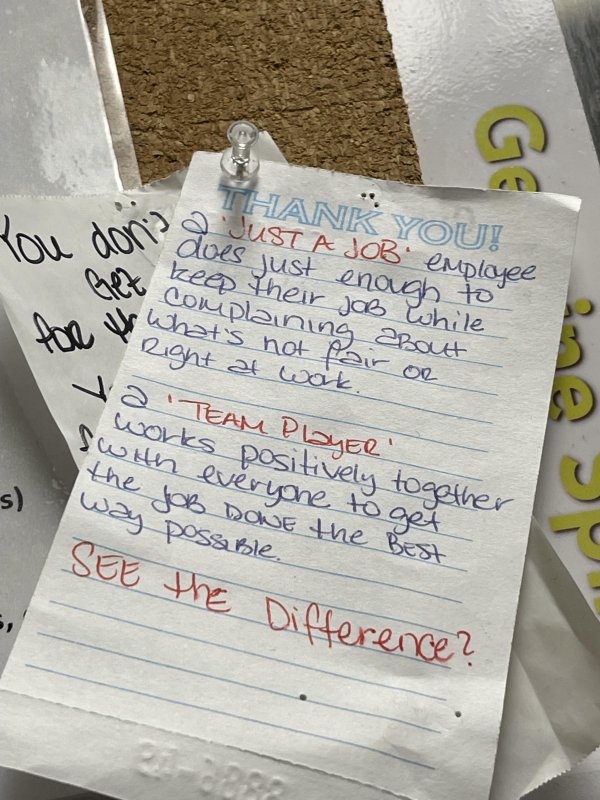 THANK YOU!
a 'JUST A JOB' employee
does just enough to
keep their job while
complaining about
what's not fair or
right at work.
a 'TEAM PLAYER'
works positively together
with everyone to get
the job DONE the BEST
way possible.
SEE the Difference?
You don't
Get
for th
s)
Ge
ine
Sp